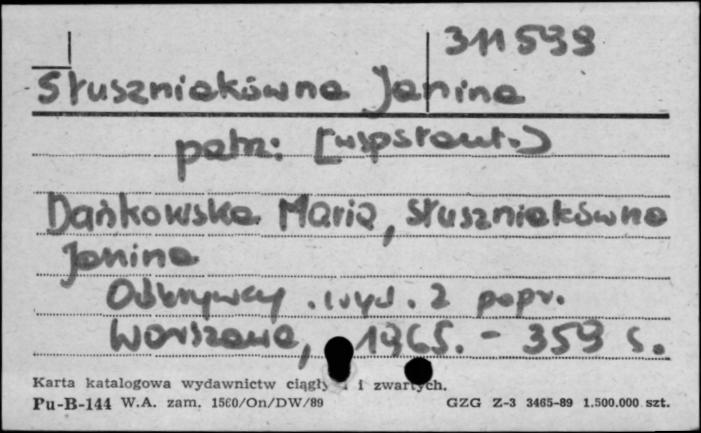 311599
Słuszniakówna Janina
patrz: [współaut.]
Dańkowska Maria, Słuszniakówna
Janina
Odkrywcy. wyd. 2 popr.
Warszawa, 1965. - 359 s.
Karta katalogowa wydawnictw ciągłych i zwartych.
Pu-B-144 W.A. zam. 1560/On/DW/89 GZG Z-3 3465-89 1.500.000 szt.